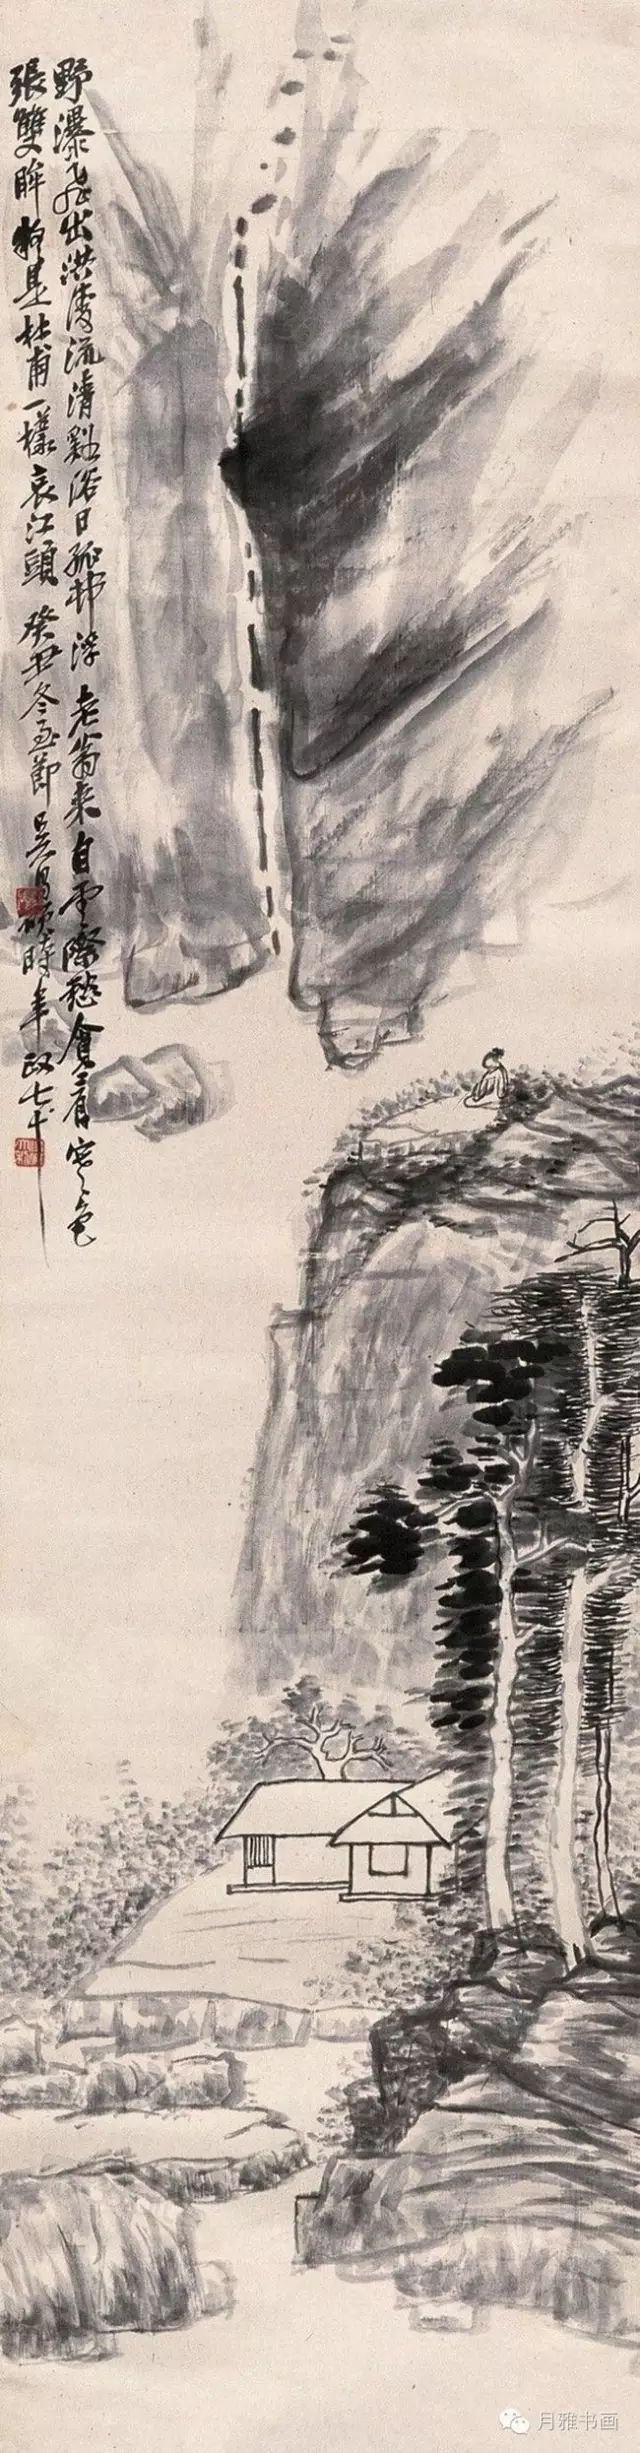 野瀑飛出洪流清谿浴日孤邨浮老翁来自雲際愁貪看寒色
張雙眸是杜甫一樣哀江頭 癸丑冬至節 吳昌碩時年政七十
月雅书画